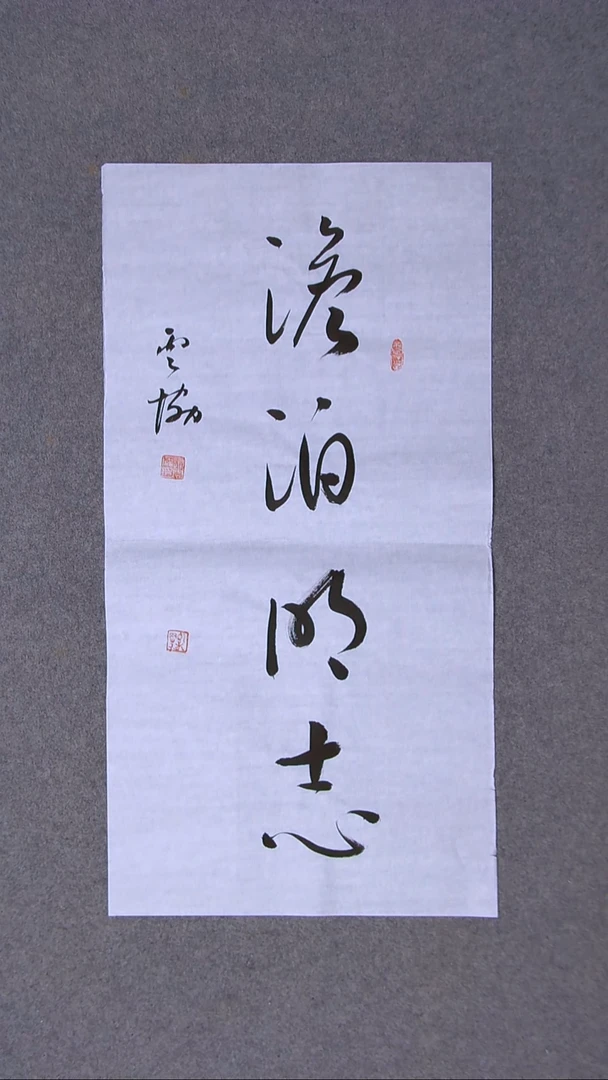 澹泊明志
雲協